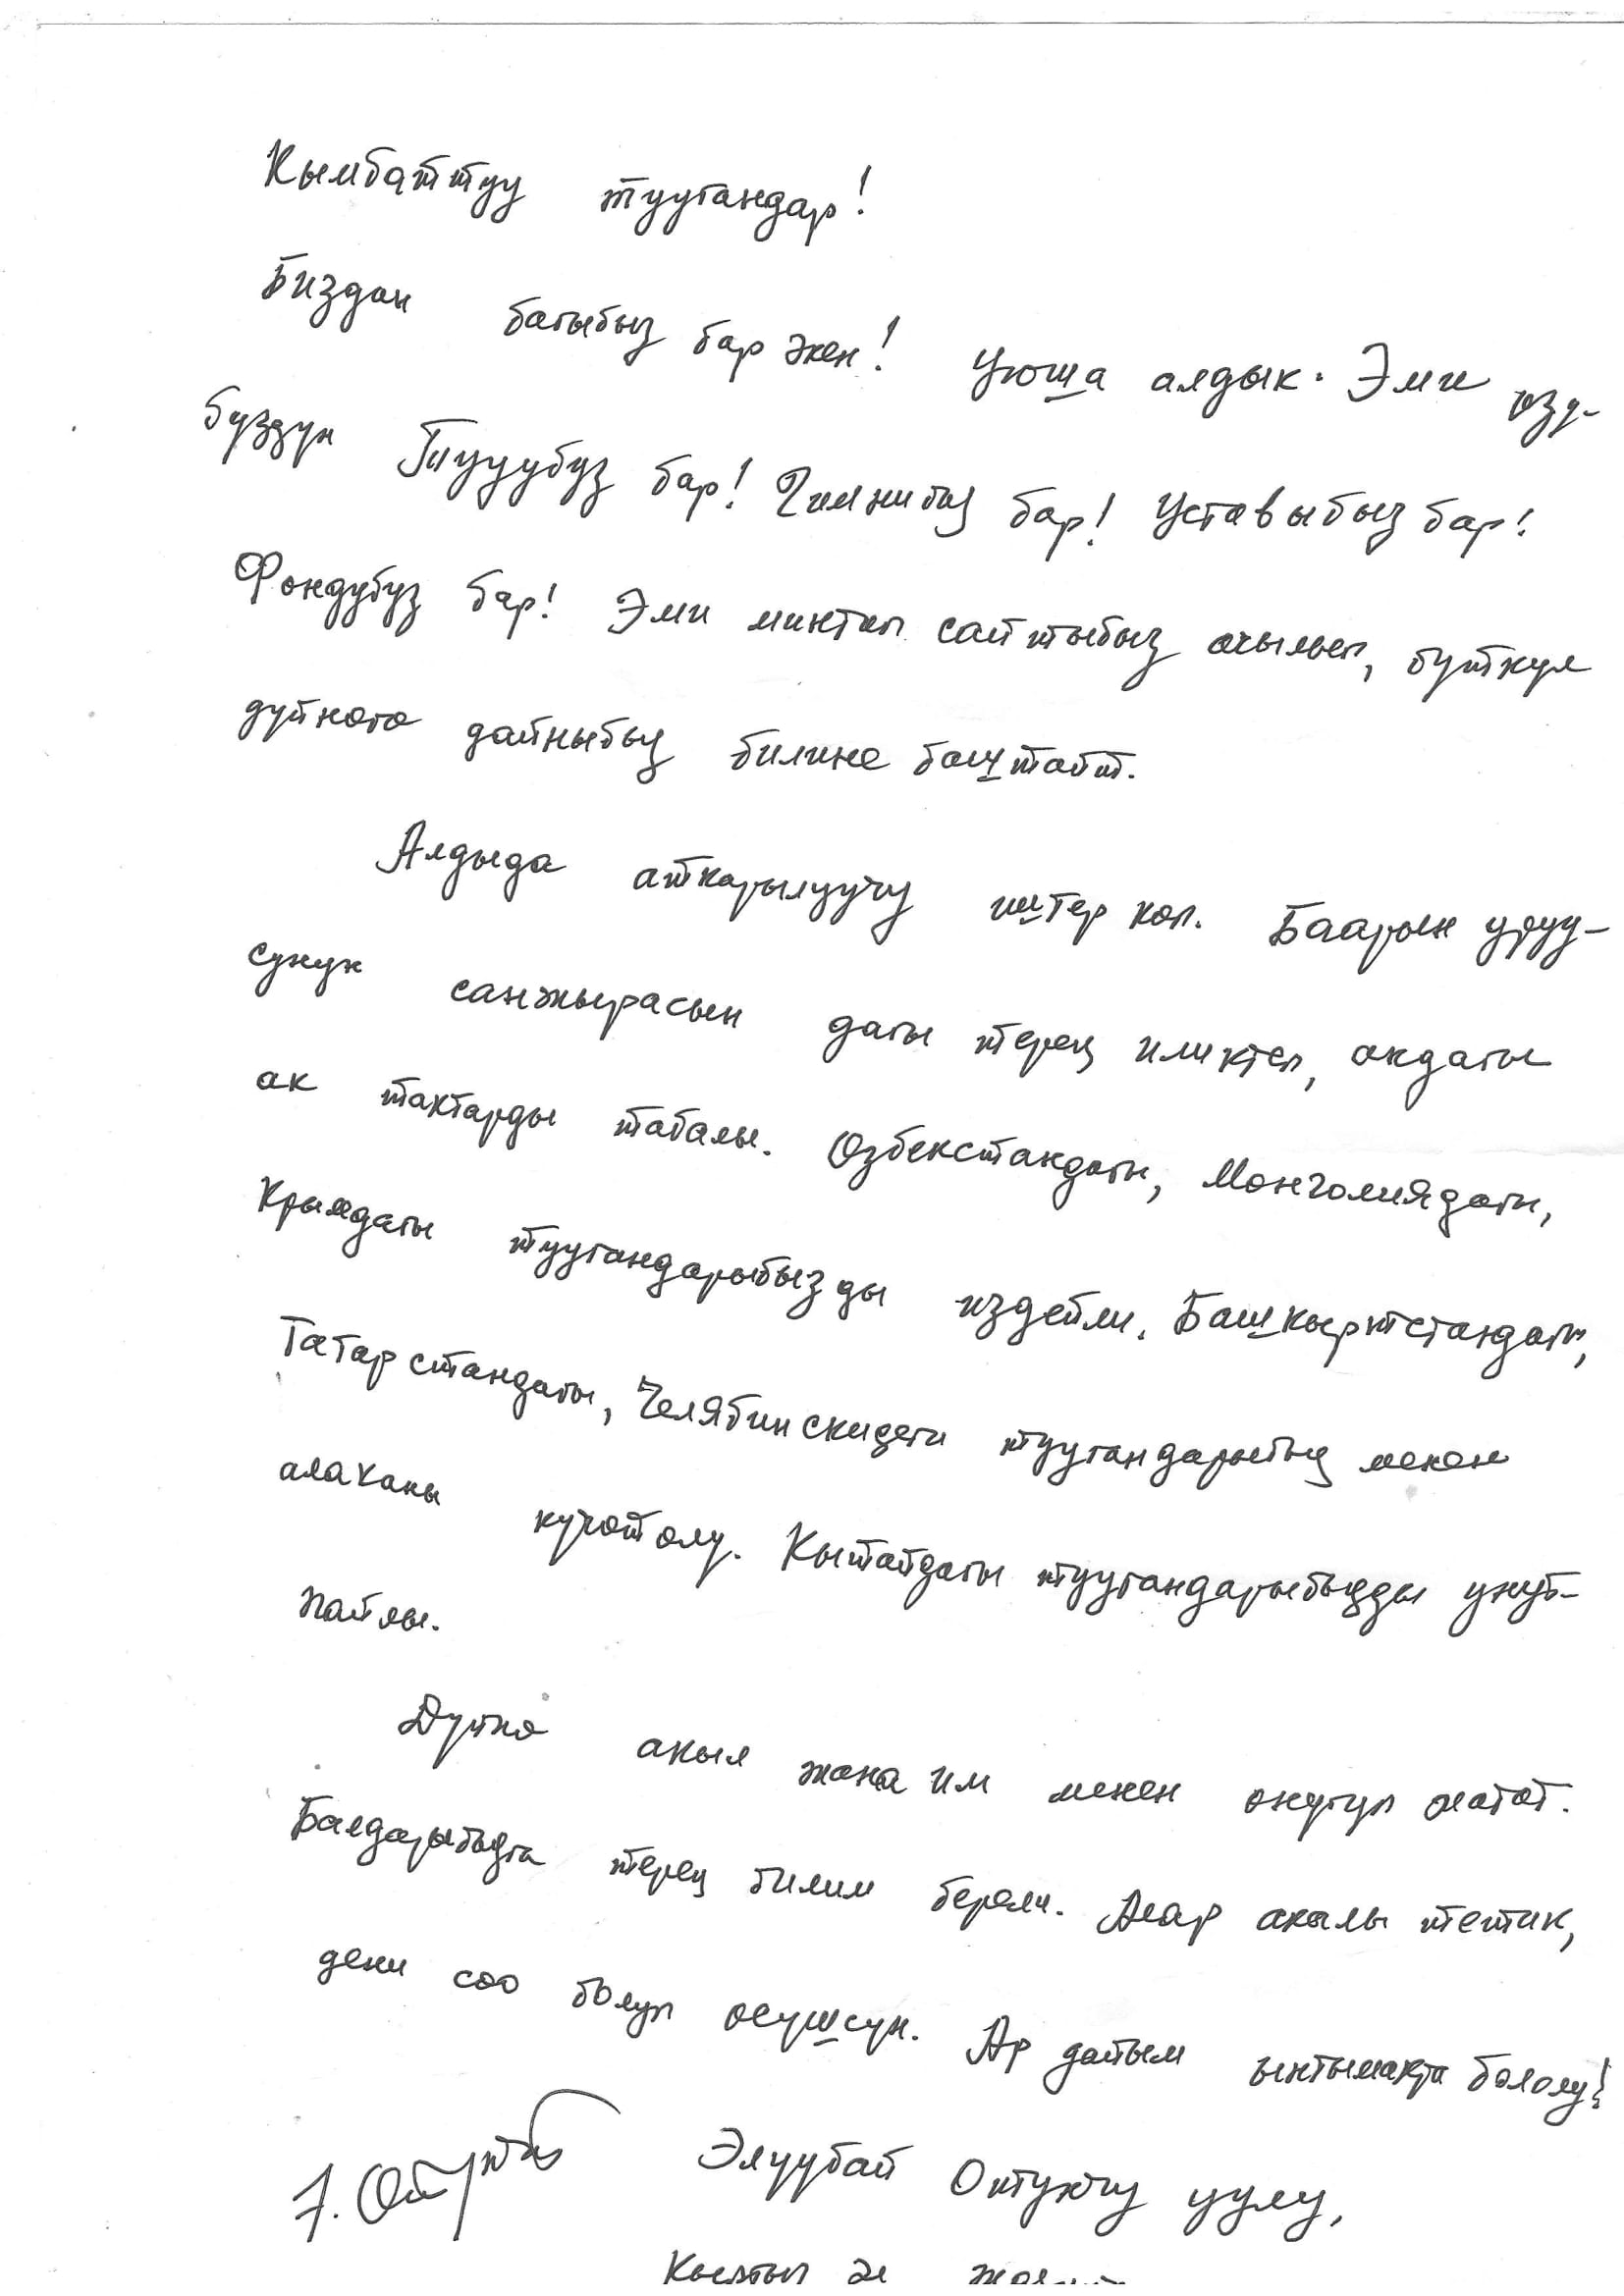 Кымбаттуу туугандар!
Биздин багыбыз бар экен! Уюша алдык. Эми өзү-
бүздүн Туубуз бар! Гимнибиз бар! Уставыбыз бар!
Фондубуз бар! Эми минтип сайтыбыз ачылып, бүткүл
дүйнөгө дайныбыз билине баштайт.
Алдыда аткарылуучу иштер көп. Баарын уруу-
сунун санжырасын дагы терең иликтеп, андагы
ак тактарды табалы. Өзбекстандагы, Монголиядагы,
Крымдагы туугандарыбызды издейли. Башкыртстандагы,
Татарстандагы, Челябинскидеги туугандарыбыз менен
алаканы күчөтөлү. Кытайдагы туугандарыбызды унут-
пайлы.
Дүйнө акыл жана им менен өнүгүп жатат.
Балдарыбызга терең билим берели. Алар акылы тетик,
дени соо болуп өсүшсүн. Ар дайым ынтымакта бололу!
Элүүбай Өктүкчү уулу,